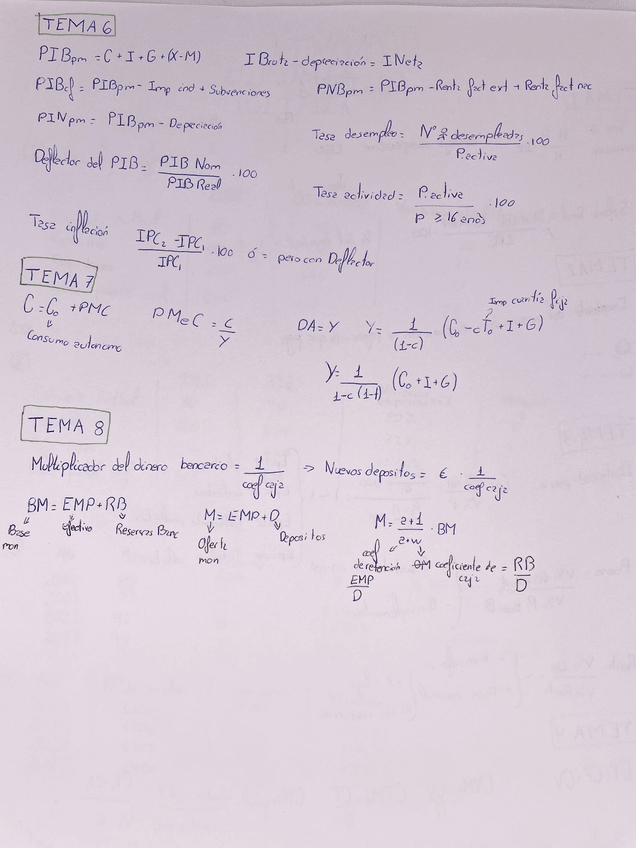 TEMA 6
PIBpm = C + I + G + (X-M)
I Bruta - depreciación = I Neta
PIBcf = PIBpm - Imp ind + Subvenciones
PNBpm = PIBpm - Renta fact ext + Renta fact nac
PINpm = PIBpm - Depreciación
Tasa desempleo = Nº desempleadas / P.activa · 100
Deflector del PIB = PIB Nom / PIB Real · 100
Tasa actividad = P.activa / P ≥ 16 años · 100
Tasa inflación IPC₂ - IPC₁ / IPC₁ · 100 ó = pero con Deflactor
TEMA 7
Imp cuantía fija
C = C₀ + PMC
PMeC = C / Y
DA = Y
Y = 1 / (1-c) (C₀ - cT₀ + I + G)
Consumo autonomo
Y = 1 / 1-c(1-t) (C₀ + I + G)
TEMA 8
Multiplicador del dinero bancario = 1 / coef caja → Nuevos depositos = € · 1 / coef caja
BM = EMP + RB
M = EMP + D
M = a+1 / a+w · BM
Base mon
efectivo
Reservas Banc
Oferta mon
Depositos
coef de retención EMP / D
coeficiente de caja = RB / D